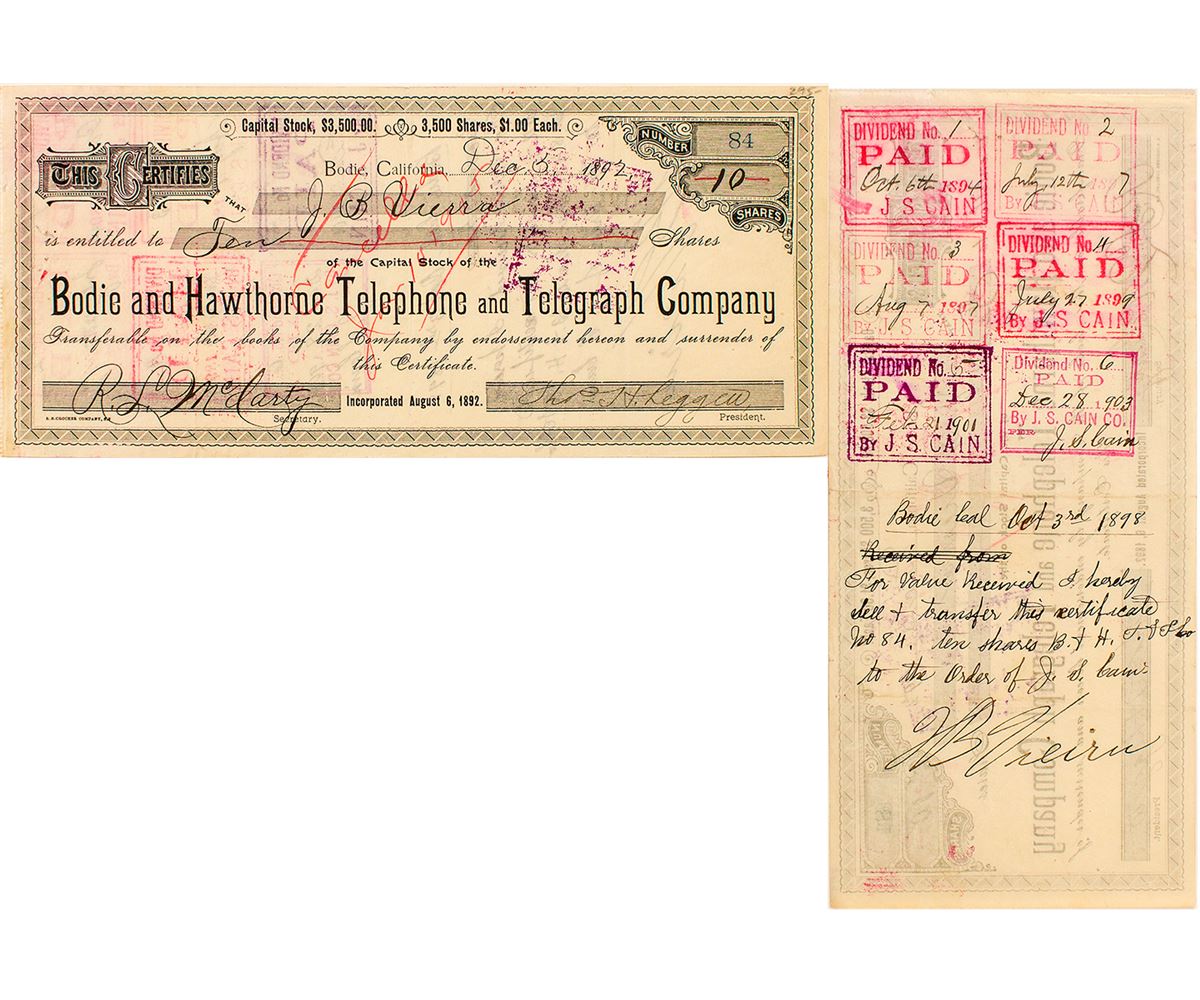 295-
Capital Stock, $3,500.00. 3,500 Shares, $1.00 Each.
NUMBER 84
Bodie, California, Dec 5 1892
THIS CERTIFIES
10
THAT J. B Vierra
SHARES
is entitled to Ten Shares
of the Capital Stock of the
Bodie and Hawthorne Telephone and Telegraph Company
Transferable on the books of the Company by endorsement hereon and surrender of
this Certificate.
R L McCarty Incorporated August 6, 1892. Thos. H. Leggett
H.S. CROCKER COMPANY, S.F. Secretary. President.
DIVIDEND No. 1
PAID
Oct 6th 1894
By J S CAIN
DIVIDEND No 2
PAID
July 12th 1897
By J S CAIN
DIVIDEND No. 3
PAID
Aug 7 1897
By J S CAIN
DIVIDEND No. 4
PAID
July 27 1899
By J. S. CAIN.
DIVIDEND No. 5
PAID
Feb 21 1901
By J. S. CAIN
Dividend No. 6
PAID
Dec. 28 1903
By J. S. CAIN CO.
PER J. S. Cain
Bodie Cal Oct 3rd 1898
Received from
For Value Received I hereby
sell & transfer this certificate
No 84. ten shares B. & H. T. & T Co
to the Order of J. S. Cain.
J B Vieira